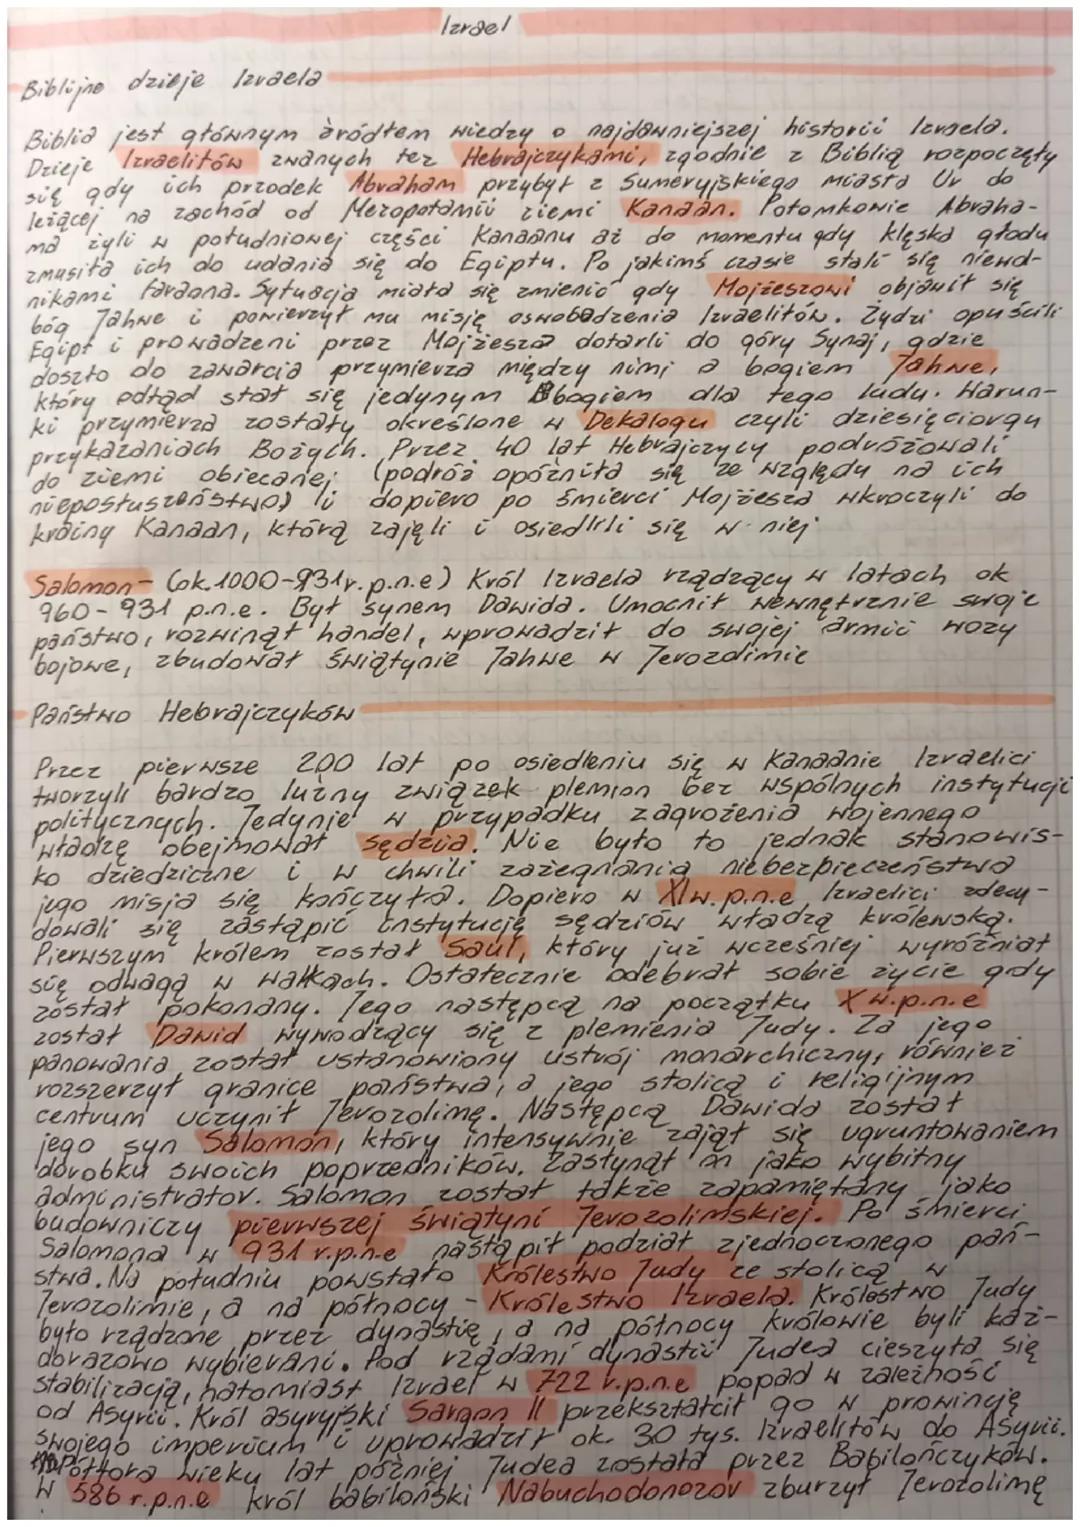 Izrael
Biblijne dzieje Izraela
Biblia jest głównym źródłem wiedzy o najdawniejszej historii Izraela.
Dzieje Izraelitów zwanych też Hebrajczykami, zgodnie z Biblią rozpoczęły
się gdy ich przodek Abraham przybył z Sumeryjskiego miasta Ur do
leżącej na zachód od Mezopotamii ziemi Kanaan. Potomkowie Abraha-
ma żyli w południowej części Kanaanu aż do momentu gdy klęska głodu
zmusiła ich do udania się do Egiptu. Po jakimś czasie stali się niewol-
nikami faraona. Sytuacja miała się zmienić gdy Mojżeszowi objawił się
bóg Jahwe i powierzył mu misję oswobodzenia Izraelitów. Żydzi opuścili
Egipt i prowadzeni przez Mojżesza dotarli do góry Synaj, gdzie
doszło do zawarcia przymierza między nimi a bogiem Jahwe,
który odtąd stał się jedynym Bbogiem dla tego ludu. Warun-
ki przymierza zostały określone w Dekalogu czyli dziesięciorgu
przykazaniach Bożych. Przez 40 lat Hebrajczycy podróżowali
do ziemi obiecanej (podróż opóźniła się ze względu na ich
nieposłuszeństwo) i dopiero po śmierci Mojżesza wkroczyli do
krainy Kanaan, którą zajęli i osiedlili się w niej
Salomon - (ok.1000-931r.p.n.e) Król Izraela rządzący w latach ok
960-931 p.n.e. Był synem Dawida. Umocnił wewnętrznie swoje
państwo, rozwinął handel, wprowadził do swojej armii wozy
bojowe, zbudował świątynie Jahwe w Jerozolimie
Państwo Hebrajczyków
Przez pierwsze 200 lat po osiedleniu się w Kanaanie Izraelici
tworzyli bardzo luźny związek plemion bez wspólnych instytucji
politycznych. Jedynie w przypadku zagrożenia wojennego
władzę obejmował sędzia. Nie było to jednak stanowis-
ko dziedziczne i w chwili zażegnania niebezpieczeństwa
jego misja się kończyła. Dopiero w XI w.p.n.e Izraelici zdecy-
dowali się zastąpić instytucję sędziów władzą królewską.
Pierwszym królem został Saul, który już wcześniej wyróżniał
się odwagą w walkach. Ostatecznie odebrał sobie życie gdy
został pokonany. Jego następcą na początku X w.p.n.e
został Dawid wywodzący się z plemienia Judy. Za jego
panowania został ustanowiony ustrój monarchiczny, również
rozszerzył granice państwa, a jego stolicą i religijnym
centrum uczynił Jerozolimę. Następcą Dawida został
jego syn Salomon, który intensywnie zajął się ugruntowaniem
dorobku swoich poprzedników. Zasłynął on jako wybitny
administrator. Salomon został także zapamiętany jako
budowniczy pierwszej świątyni Jerozolimskiej. Po śmierci
Salomona w 931 r.p.n.e nastąpił podział zjednoczonego pań-
stwa. Na południu powstało Królestwo Judy ze stolicą w
Jerozolimie, a na północy - Królestwo Izraela. Królestwo Judy
było rządzone przez dynastię, a na północy królowie byli każ-
dorazowo wybierani. Pod rządami dynastii Judea cieszyła się
stabilizacją, natomiast Izrael w 722 r.p.n.e popadł w zależność
od Asyrii. Król asyryjski Sargon II przekształcił go w prowincję
swojego imperium i uprowadził ok. 30 tys. Izraelitów do Asyrii.
Półtora wieku lat później Judea została przez Babilończyków.
W 586 r.p.n.e król babiloński Nabuchodonozor zburzył Jerozolimę